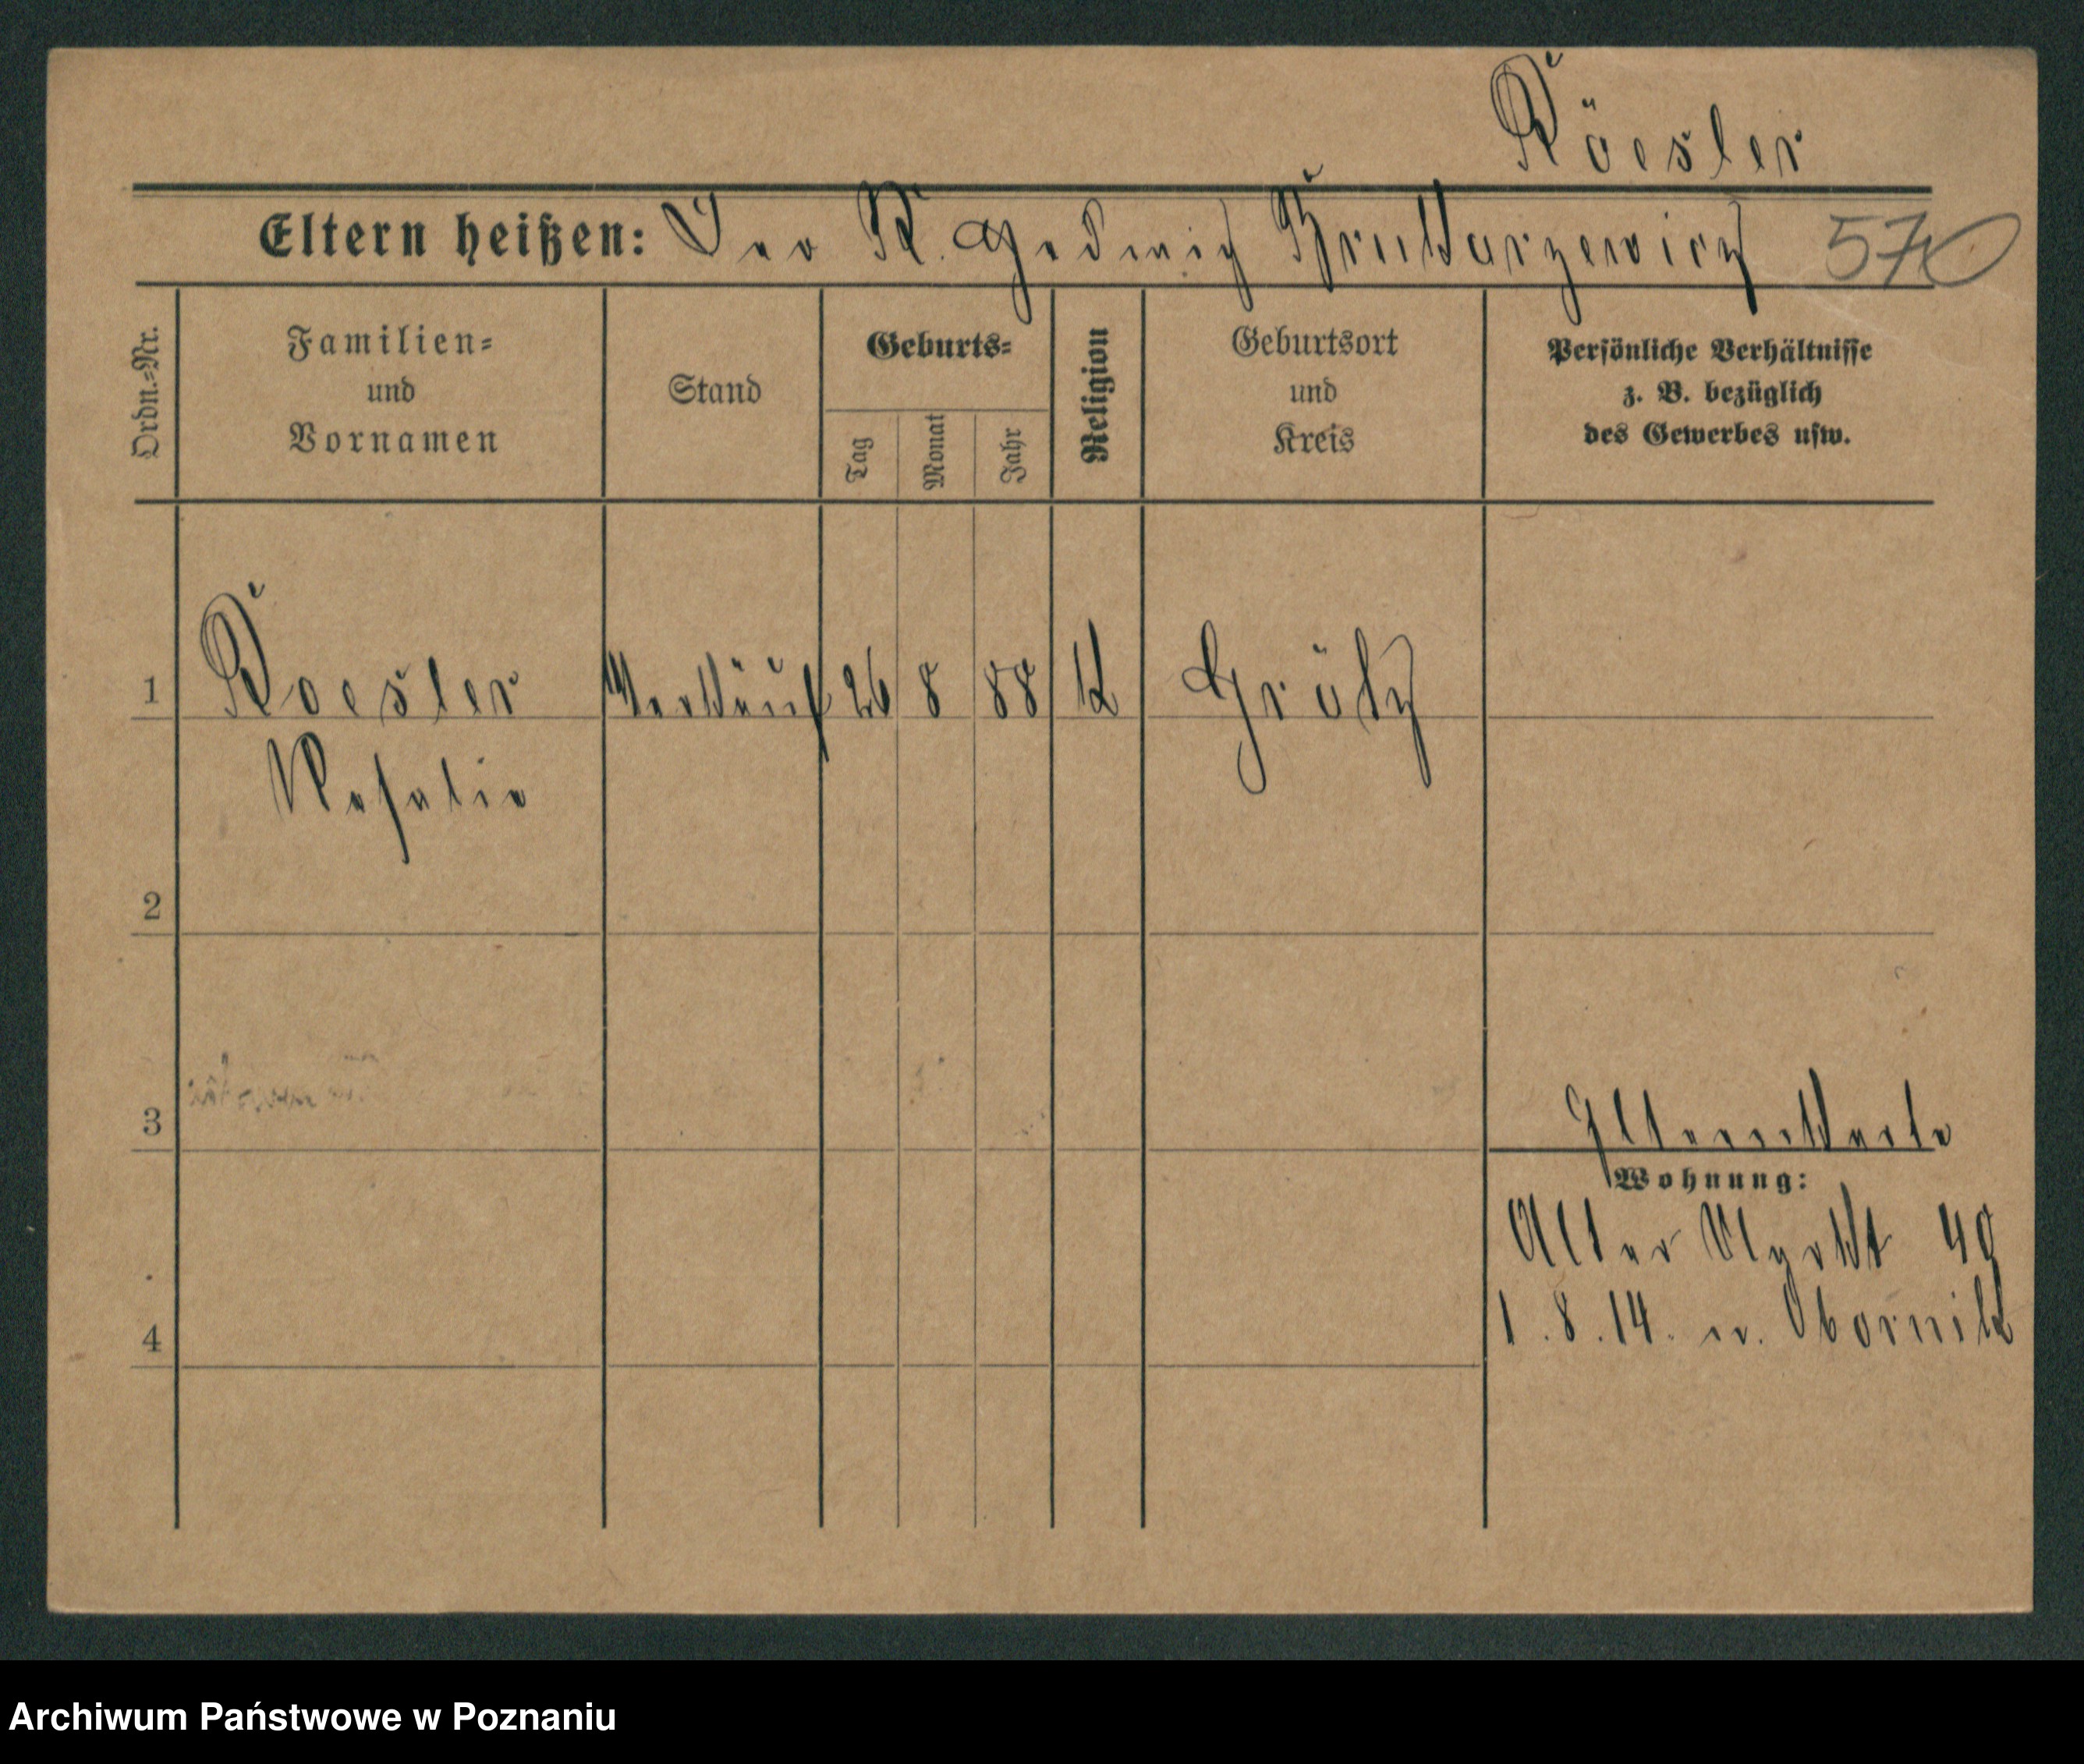 Röesler
Eltern heißen: Leo R. Hedwig Bruktarzewicz 570
Ordn.-Nr.
Familien-
und
Vornamen
Stand
Geburts-
Tag
Monat
Jahr
Religion
Geburtsort
und
Kreis
Persönliche Verhältnisse
z. B. bezüglich
des Gewerbes usw.
1 Roesler Verkäuf 26 8 88 k Grätz
Rosalie
2
3
Wohnung:
Alter Markt 49
1.8.14. n. Obornik
4
Archiwum Państwowe w Poznaniu